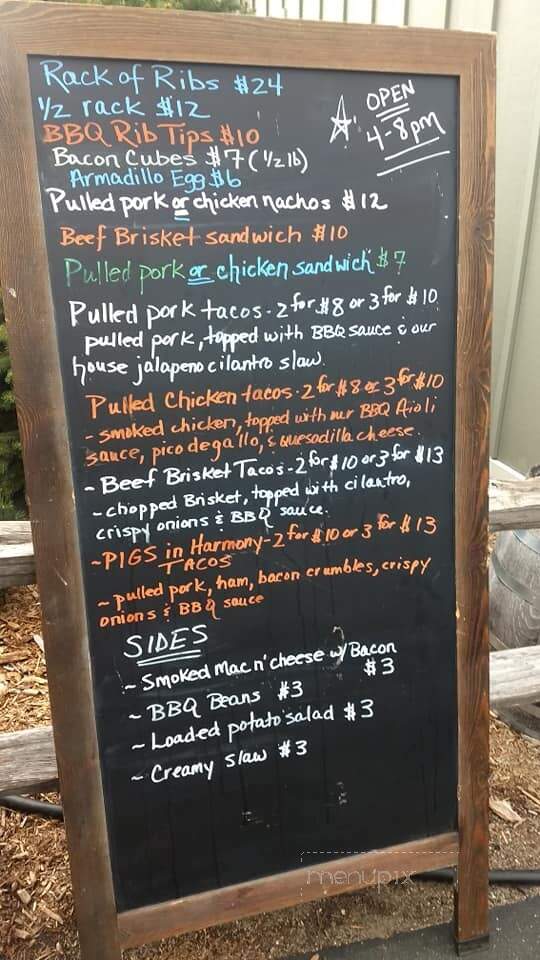 Rack of Ribs $24
1/2 rack $12
OPEN
4-8pm
BBQ Rib Tips $10
Bacon Cubes $7 (1/2 lb)
Armadillo Egg $6
Pulled pork or chicken nachos $12
Beef Brisket sandwich $10
Pulled pork or chicken sandwich $7
Pulled pork tacos - 2 for $8 or 3 for $10
pulled pork, topped with BBQ sauce & our
house jalapeno cilantro slaw.
Pulled Chicken tacos - 2 for $8 or 3 for $10
- smoked chicken, topped with our BBQ Aioli
sauce, pico de gallo, & quesadilla cheese.
- Beef Brisket Tacos - 2 for $10 or 3 for $13
- chopped Brisket, topped with cilantro,
crispy onions & BBQ sauce.
~PIGS in Harmony - 2 for $10 or 3 for $13
TACOS
~ pulled pork, ham, bacon crumbles, crispy
onions & BBQ sauce
SIDES
~ Smoked Mac n' cheese w/ Bacon
$3
~ BBQ Beans $3
~ Loaded potato salad $3
~ Creamy slaw $3
menupix